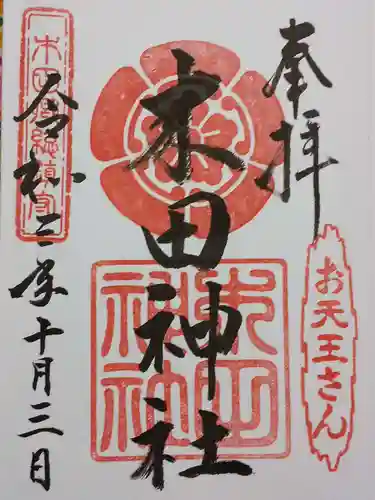 奉拝
お天王さん
木田神社
木田神社
木田郷総鎮守
令和二年十月三日